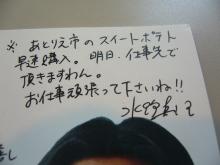 ※ あとりえ市のスイートポテト
早速購入。明日、仕事先で
頂きますわん。
お仕事頑張って下さいね!!